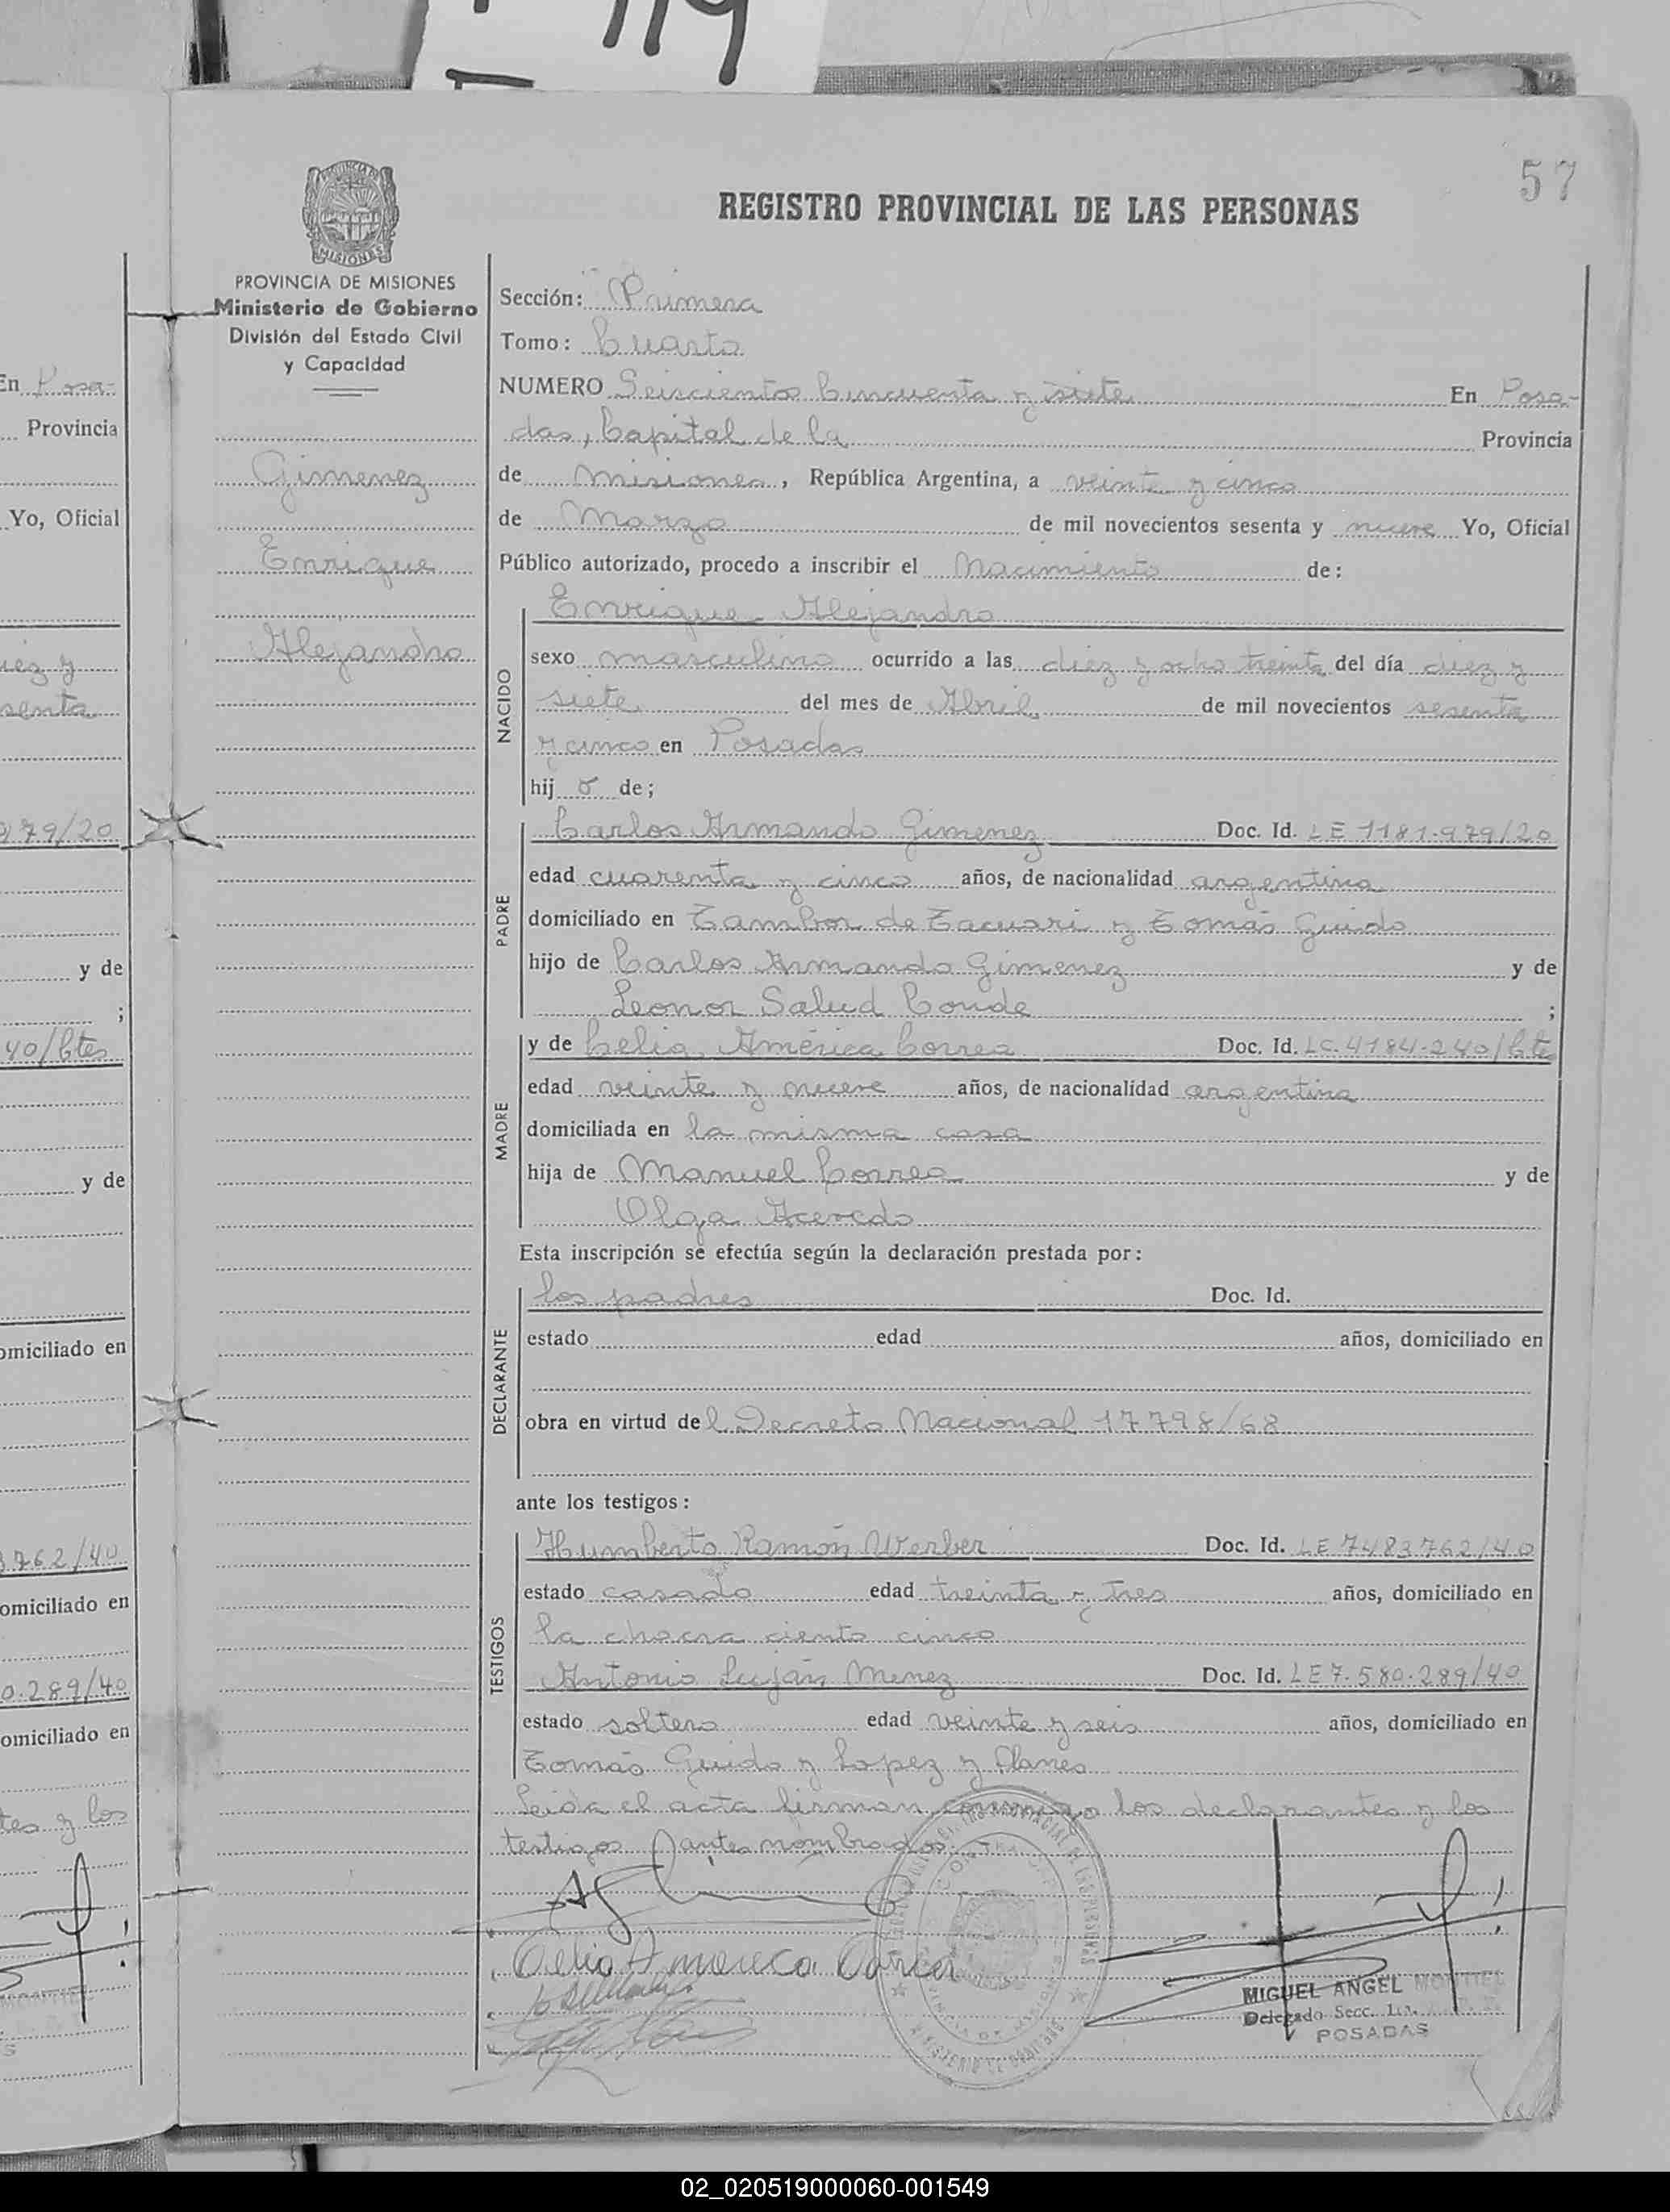 57
REGISTRO PROVINCIAL DE LAS PERSONAS
PROVINCIA DE MISIONES
Ministerio de Gobierno
División del Estado Civil
y Capacidad
Gimenez
Enrique
Alejandro
Sección: Primera
Tomo: Cuarto
NUMERO Seiscientos Cincuenta y siete En Posa-
das, Capital de la Provincia
de Misiones, República Argentina, a veinte y cinco
de Marzo de mil novecientos sesenta y nueve Yo, Oficial
Público autorizado, procedo a inscribir el Nacimiento de:
NACIDO
Enrique Alejandro
sexo masculino ocurrido a las diez y ocho treinta del día diez y
siete del mes de Abril de mil novecientos sesenta
y cinco en Posadas
hij o de;
PADRE
Carlos Armando Gimenez Doc. Id. LE 1181.979/20
edad cuarenta y cinco años, de nacionalidad argentina
domiciliado en Tambor de Tacuari y Tomás Guido
hijo de Carlos Armando Gimenez y de
Leonor Salud Conde ;
MADRE
y de Celia América Correa Doc. Id. LC.4184.240/Ctes
edad veinte y nueve años, de nacionalidad argentina
domiciliada en la misma casa
hija de Manuel Correa y de
Olga Acevedo
Esta inscripción se efectúa según la declaración prestada por:
DECLARANTE
los padres Doc. Id.
estado edad años, domiciliado en
obra en virtud del Decreto Nacional 17798/68
ante los testigos:
TESTIGOS
Humberto Ramón Werber Doc. Id. LE 7483762/40
estado casado edad treinta y tres años, domiciliado en
la chacra ciento cinco
Antonio Luján Menez Doc. Id. LE 7.580.289/40
estado soltero edad veinte y seis años, domiciliado en
Tomás Guido y Lopez y Planes
Leida el acta firman conmigo los declarantes y los
testigos antes nombrados.
Celia America Correa
MIGUEL ANGEL MONTIEL
Delegado Secc. 1ra.
POSADAS
En Posa-
Provincia
Yo, Oficial
iez y
senta
979/20
y de
;
40/Ctes
y de
omiciliado en
3762/40
omiciliado en
0.289/40
omiciliado en
tes y los
MONTIEL
02_020519000060-001549